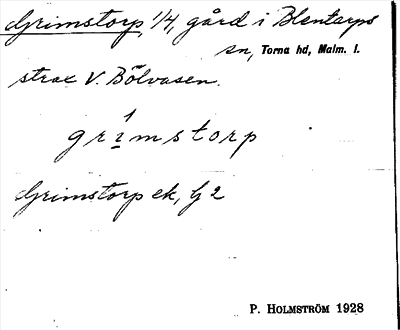 Grimstorp 1/4, gård i Blentarps
sn, Torna hd, Malm. l.
strax V. Bölvasen.
grì̱mstorp
Grimstorp ek, Gj 2
P. HOLMSTRÖM 1928